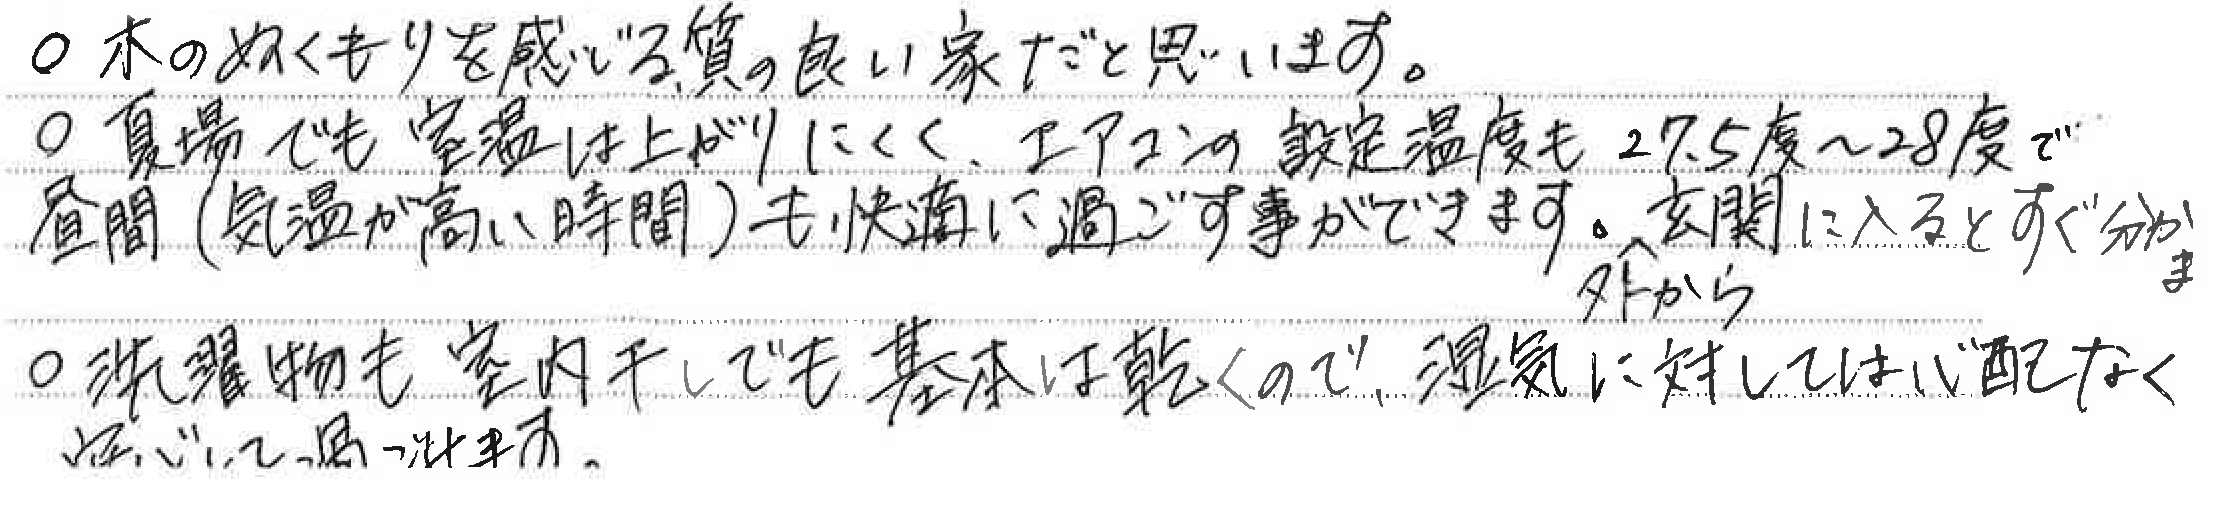 ○ 木のぬくもりを感じる質の良い家だと思います。
○ 夏場でも室温は上がりにくく、エアコンの設定温度も 27.5度～28度で
昼間(気温が高い時間)も快適に過ごす事ができます。玄関に入るとすぐ分かりま
外から
○ 洗濯物も室内干しでも基本は乾くので、湿気に対しては心配なく
安心して過ごせます。